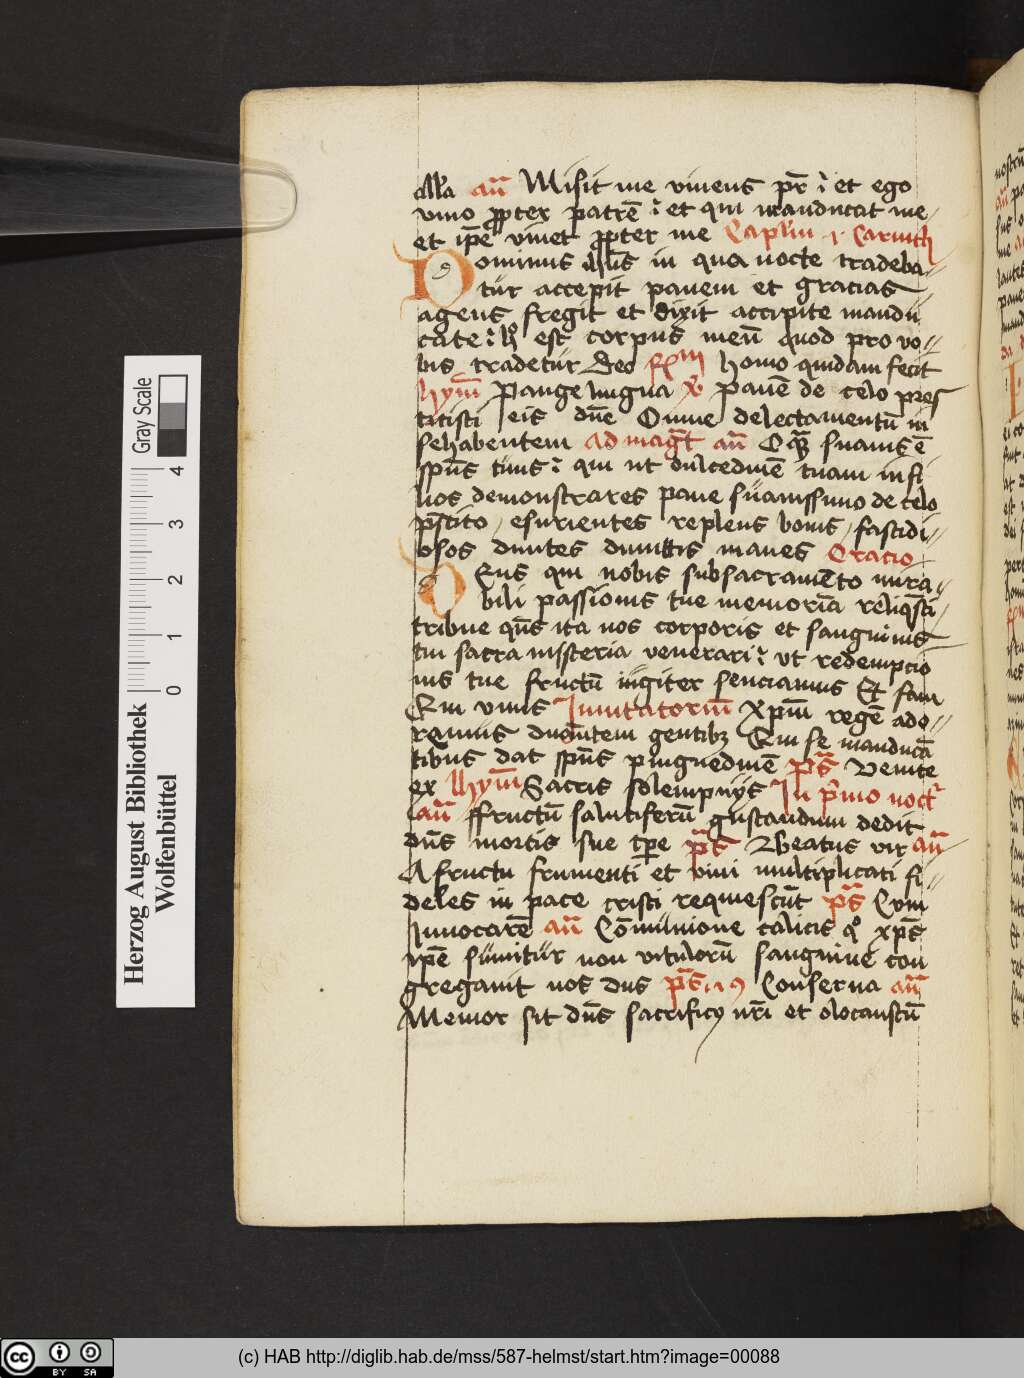 all'a an̄ Misit me vivens pr̄ ⁊ et ego
vivo propter patrē ⁊ et qui manducat me
et ip̄e vivet propter me Capl'm Carinth
Dominus ihūs in qua nocte tradeba-
tur accepit panem et gracias
agens fregit et dixit accipite mandu
cate ⁊ hͦ est corpus meū quod pro vo-
bis tradetur Deo Homo quidam fecit
Hym̄ Pange lingua Panē de celo pres
titisti eis dn̄e Omne delectamentū in
se habentem Ad maḡt an̄ O quā suavis ē
spūs tuus ⁊ qui ut dulcedinē tuam in fi
lios demonstrares pane suavissimo de celo
p̄stito esurientes reples bonis fastidi-
osos divites dimittis inanes Oracio
Deus qui nobis sub sacramēto mira-
bili passionis tue memoriā reliq̄sti
tribue q̄s ita nos corporis et sanguinis
tui sacra misteria venerari ⁊ ut redempcio
nis tue fructū iugiter senciamus Et fam
Qui vivis Invitatoriū Xp̄m regē ado-
remus dn̄antem gentibꝫ Qui se manducā
tibus dat spūs pinguedinē ps̄ Venite
ex Hym̄ Sacris solempnijs In p̄mo noct'
an̄ ffructū salutiferū gustandum dedit
dn̄s mortis sue tp̄e ps̄ Beatus vir an̄
A fructu frumenti et vini multiplicati fi-
deles in pace cristi requiescūt ps̄ Cum
Invocarē an̄ Cōmunione calicis qͦ xp̄s
ip̄e sumitur non vitulorū sanguine con
gregavit nos dns ps̄ Conserva an̄
Memor sit dn̄s sacrificij nr̄i et olocaustū
Herzog August Bibliothek
Wolfenbüttel
Gray Scale
0 1 2 3 4
cc BY SA
(c) HAB http://diglib.hab.de/mss/587-helmst/start.htm?image=00088